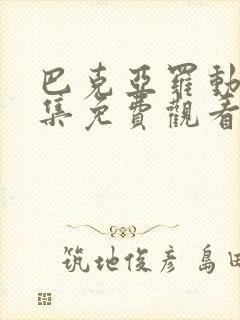 巴克亞羅動
集免費觀看
筑地俊彥 島田